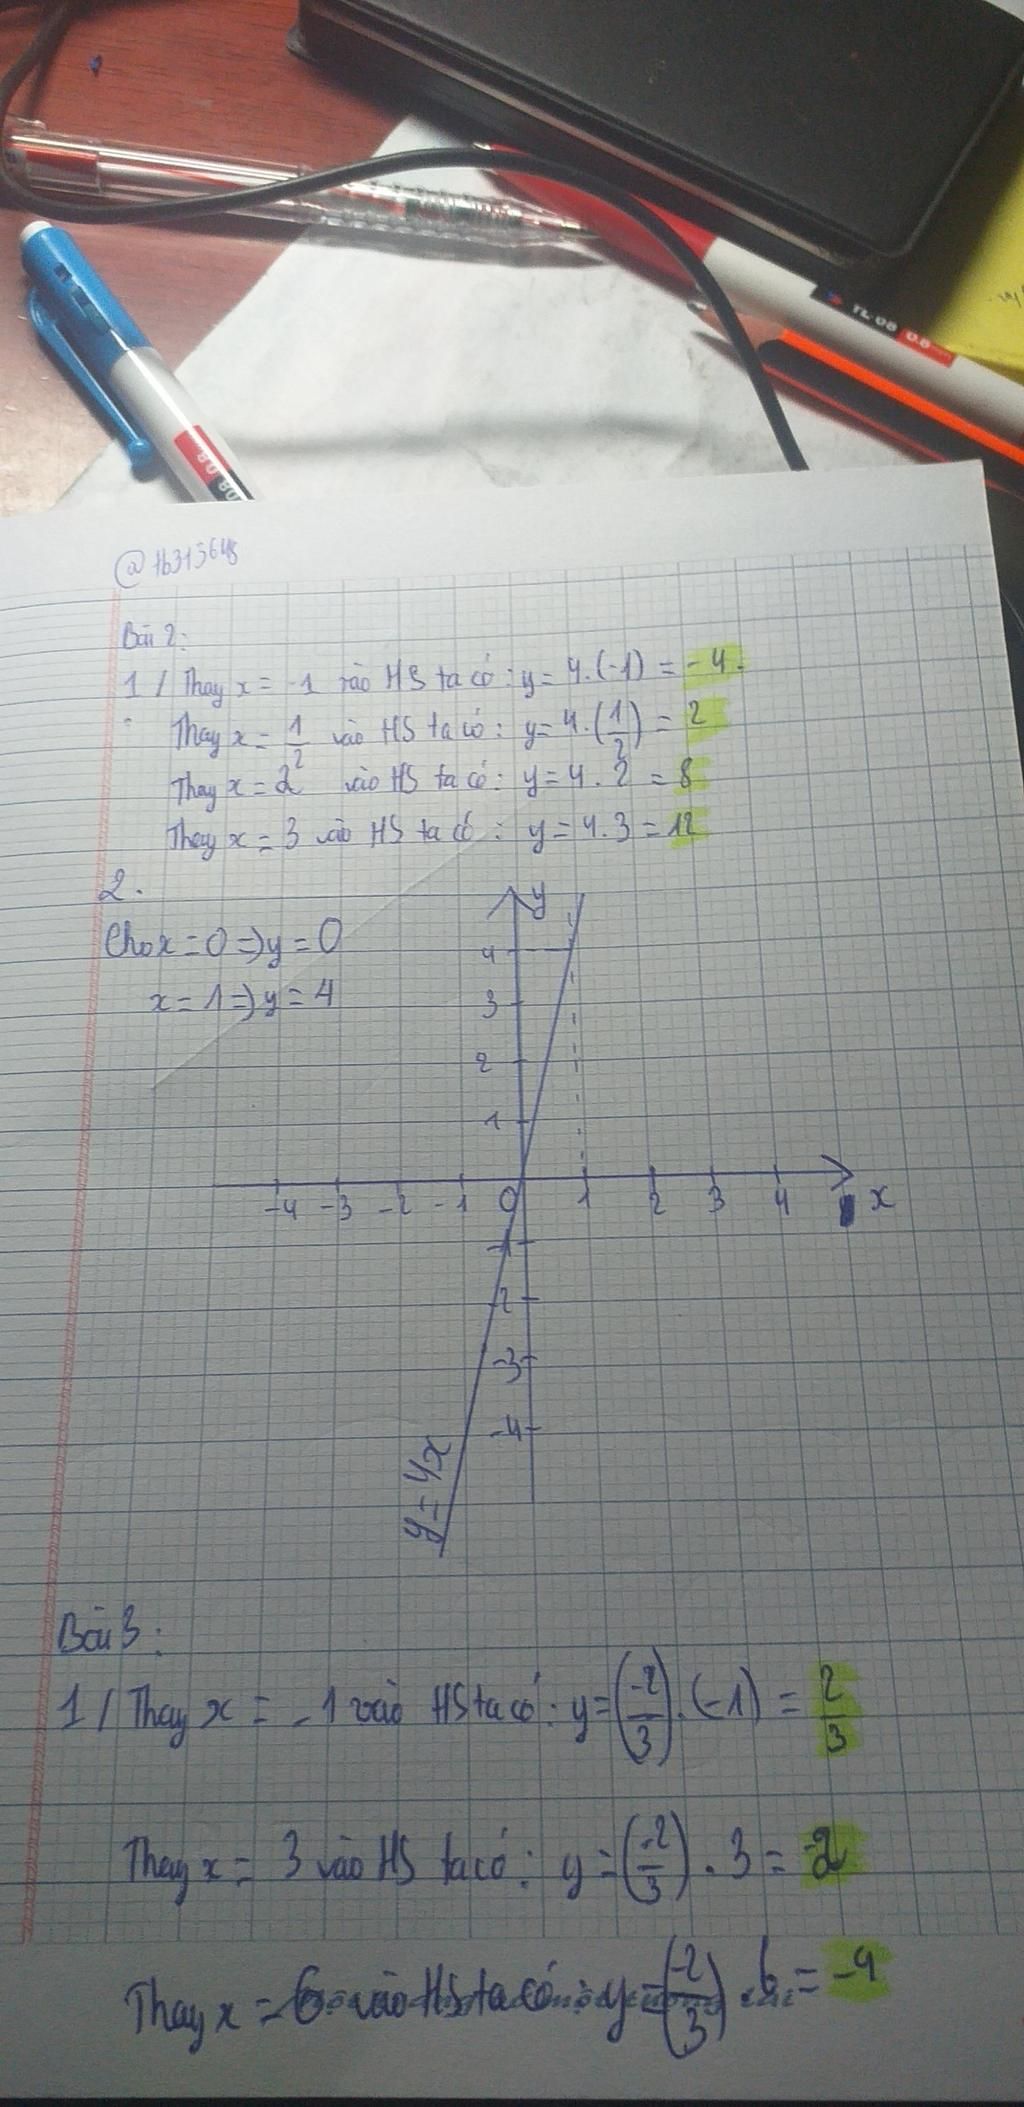 TL-08 0.8
0.8 08
@1b315648
Bài 2:
1 / Thay x = -1 vào HS ta có : y = 4.(-1) = -4.
Thay x = 1/2 vào HS ta có : y = 4.(1/2) = 2
Thay x = 2 vào HS ta có : y = 4 . 2 = 8
Thay x = 3 vào HS ta có : y = 4.3 = 12
2.
Cho x = 0 => y = 0
x = 1 => y = 4
y
4
3
2
1
-4 -3 -2 -1 0 1 2 3 4 x
-1
-2
-3
-4
y = 4x
Bài 3 :
1 / Thay x = -1 vào HS ta có : y = (-2/3).(-1) = 2/3
Thay x = 3 vào HS ta có : y = (-2/3) . 3 = -2
Thay x = 6 vào HS ta có : y = (-2/3) . 6 = -4